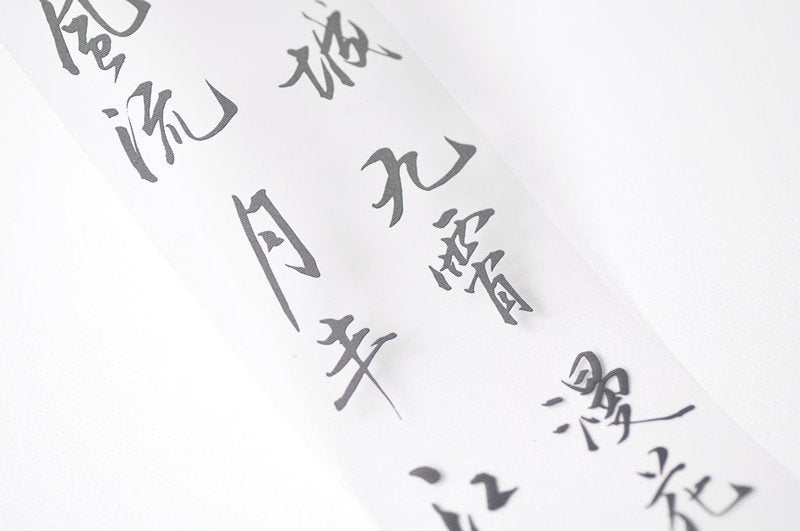 城
九霄
漫花
風流
月半
江